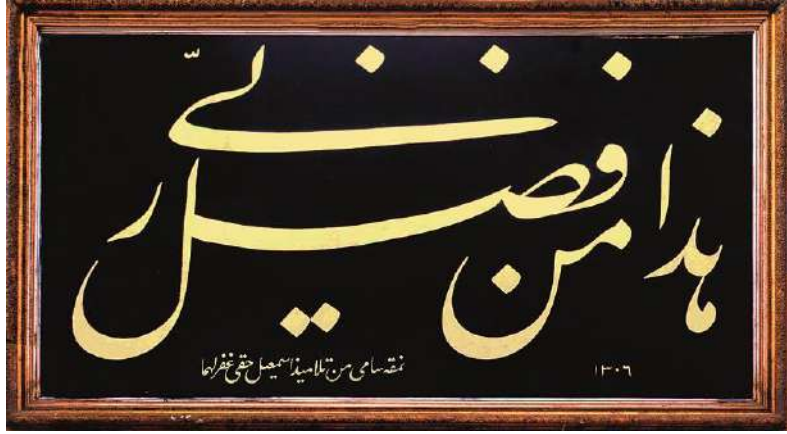 هذا من فضل ربّي
نمقه سامی من تلامیذ اسمعیل حقی غفر لهما
١٣٠٦